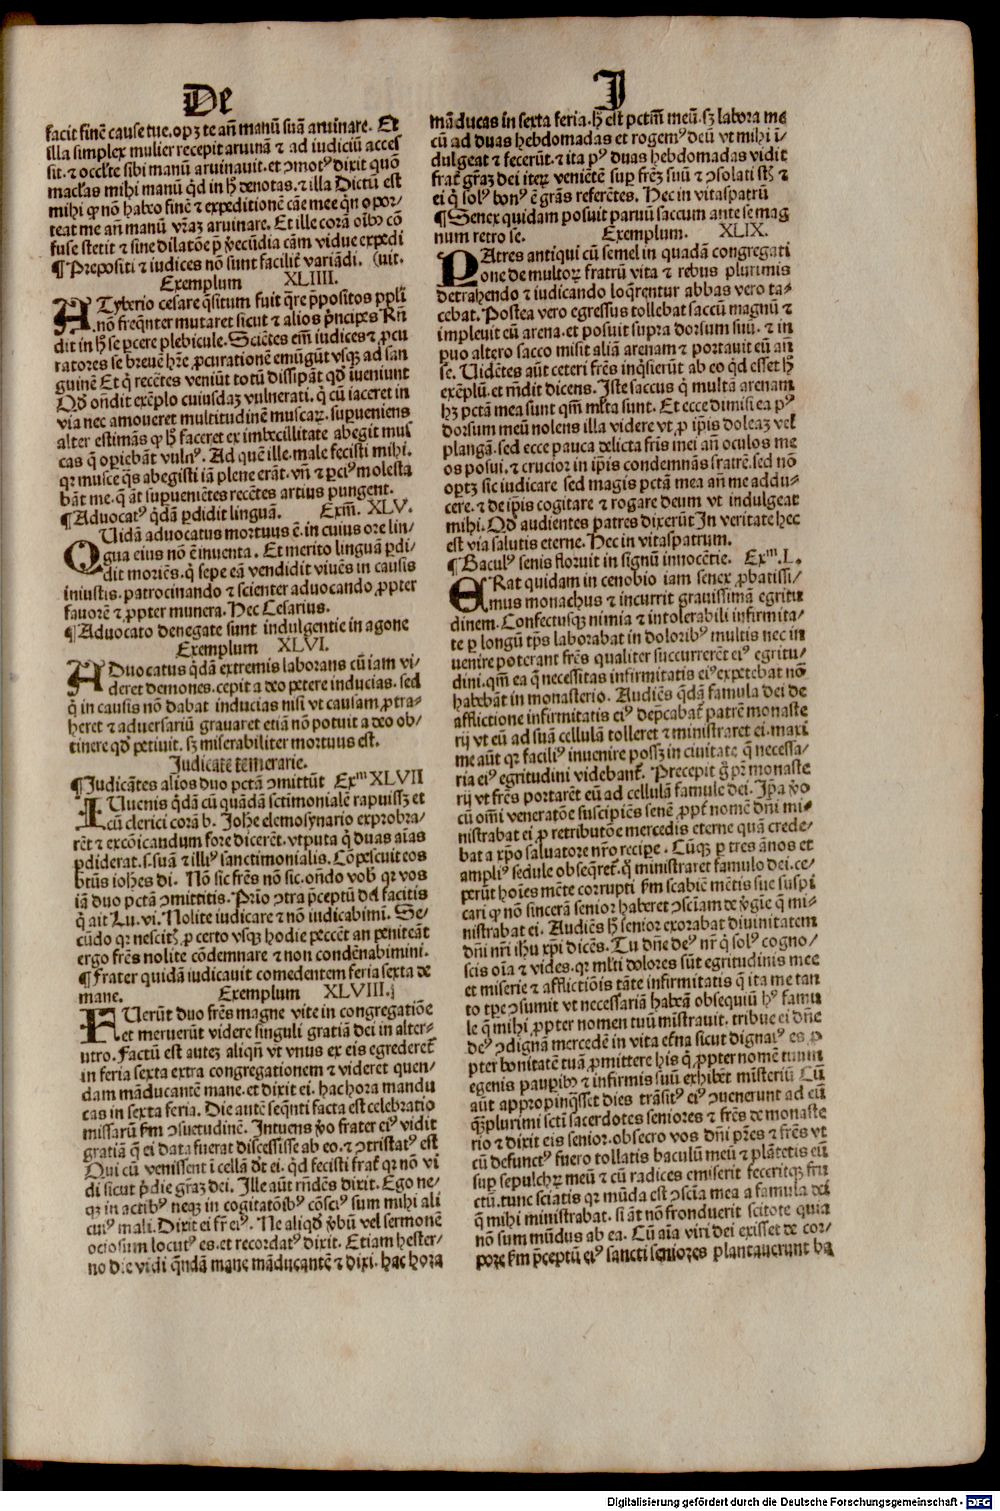 De
J
facit finē cause tue. opꝫ te añ manū suā aruinare. Et
illa simplex mulier recepit aruinā ⁊ ad iudiciū acces
sit. ⁊ occl̄te sibi manū aruinauit. et ↄmotꝰ dixit quō
mac̄las mihi manū q̇d in h̄ denotas. ⁊ illa Dictū est
mihi ꝙ nō habeo finē ⁊ expeditionē cāe mee q̇n opor-
teat me añ manū vr̄aꝫ aruinare. Et ille corā oībꝰ cō
fuse stetit ⁊ sine dilatōe p̄ v̄ecūdia cām vidue expedi
¶Prepositi ⁊ iudices nō sunt facilit̄ variādi. (uit.
Exemplum XLIIII.
ATyberio cesare q̄situm fuit q̄re p̄positos ppl̄i
nō freq̄nter mutaret sicut ⁊ alios p̄ncipes Rn̄
dit in h̄ se ꝑcere plebicule. Sciētes em̄ iudices ⁊ ꝓcu
ratores se breuē hr̄e ꝓcurationē emūgūt vsqꝫ ad san
guinē Et q̇ recētes veniūt totū dissipāt qd̄ iueniunt
Qd̄ on̄dit exēplo cuiusdaꝫ vulnerati. q̇ cū iaceret in
via nec amoueret multitudinē muscaꝝ. supueniens
alter estimās ꝙ h̄ faceret ex imbecillitate abegit mus
cas q̄ opiebāt vulnꝰ. Ad quē ille. male fecisti mihi.
qꝛ musce q̄s abegisti iā plene erāt. vn̄ ⁊ ꝑciꝰ molesta
bāt me. q̄ āt supueniētes recētes artius pungent.
¶Aduocatꝰ q̇dā ꝑdidit linguā. Exm̄. XLV.
QUidā aduocatus mortuus ē. in cuius ore lin-
gua eius nō ē inuenta. Et merito linguā ꝑdi-
dit moriēs. q̇ sepe eā vendidit viuēs in causis
iniustis. patrocinando ⁊ scienter aduocando ꝓpter
fauorē ⁊ ꝓpter munera. Hec Cesarius.
¶Aduocato denegate sunt indulgentie in agone
Exemplum XLVI.
ADuocatus q̇dā extremis laborans cū iam vi-
deret demones. cepit a deo petere inducias. sed
q̇ in causis nō dabat inducias nisi vt causam ꝓtra-
heret ⁊ aduersariū grauaret etiā nō potuit a deo ob-
tinere qd̄ petiuit. sꝫ miserabiliter mortuus est.
Judicātē tēmerarie.
¶Judicātes alios duo pctā ↄmittūt Exᵐ XLVII
IUuenis q̇dā cū quādā sctimonialē rapuissꝫ et
cū clerici corā b. Johe elemosynario exprobra-
rēt ⁊ excōicandum fore dicerēt. vtputa q̇ duas aīas
ꝑdiderat. s. suā ⁊ illiꝰ sanctimonialis. Cōpescuit eos
btūs iohes di. Nō sic frēs nō sic. on̄do vob̄ qꝛ vos
iā duo pctā ↄmittitis. Prīo ↄtra p̄ceptū dei facitis
q̇ ait Lu. vi. Nolite iudicare ⁊ nō iudicabimī. Se-
cūdo qꝛ nescitꝭ ꝓ certo vsqꝫ hodie peccēt an peniteāt
ergo frēs nolite cōdemnare ⁊ non condēnabimini.
¶Frater quidā iudicauit comedentem feria sexta de
mane. Exemplum XLVIII.
FUerūt duo frēs magne vite in congregatiōe
et meruerūt videre singuli gratiā dei in alter-
utro. Factū est auteꝫ aliqn̄ vt vnus ex eis egrederet̄
in feria sexta extra congregationem ⁊ videret quen-
dam māducantē mane. et dixit ei. hac hora mandu
cas in sexta feria. Die autē seq̄nti facta est celebratio
missarū ẜm ↄsuetudinē. Intuens v̄o frater eiꝰ vidit
gratiā q̄ ei data fuerat discessisse ab eo. ⁊ ↄtristatꝰ est
Qui cū venissent ī cellā dt̄ ei. q̇d fecisti frat̄ qꝛ nō vi
di sicut p̄die gr̄aꝫ dei. Ille aūt rn̄dēs dixit. Ego ne-
qꝫ in actibꝰ neqꝫ in cogitatōibꝰ cōsciꝰ sum mihi ali
cuiꝰ mali. Dixit ei fr̄ eiꝰ. Ne aliqd̄ v̄bū vel sermonē
ociosum locutꝰ es. et recordatꝰ dixit. Etiam hester-
no die vidi quēdā mane māducantē ⁊ dixi. hac hora
māducas in sexta feria. h̄ est pctm̄ meū. sꝫ labora me
cū ad duas hebdomadas et rogemꝰ deū vt mihi ī-
dulgeat ⁊ fecerūt. ⁊ ita pꝰ duas hebdomadas vidit
frat̄ gr̄aꝫ dei iteꝝ veniētē sup frēꝫ suū ⁊ ↄsolati st̄ ⁊
ei q̇ solꝰ bonꝰ ē grās referētes. Hec in vitaspatrū
¶Senex quidam posuit paruū saccum ante se mag
num retro se. Exemplum. XLIX.
PAtres antiqui cū semel in quadā congregati
one de multoꝝ fratrū vita ⁊ rebus plurimis
detrahendo ⁊ iudicando loq̄rentur abbas vero ta-
cebat. Postea vero egressus tollebat saccū magnū ⁊
impleuit eū arena. et posuit supra dorsum suū. ⁊ in
ꝑuo altero sacco misit aliā arenam ⁊ portauit eū añ
se. Uidētes aūt ceteri frēs inq̄sierūt ab eo q̇d esset h̄
exēplū. et rn̄dit dicens. Iste saccus q̇ multā arenam
hꝫ pctā mea sunt qm̄ ml̄ta sunt. Et ecce dimisi ea pꝰ
dorsum meū nolens illa videre vt ꝓ ip̄is doleaꝫ vel
plangā. sed ecce pauca delicta fr̄is mei añ oculos me
os posui. ⁊ crucior in ip̄is condemnās fratrē. sed nō
oportꝫ sic iudicare sed magis pctā mea añ me addu-
cere. ⁊ de ip̄is cogitare ⁊ rogare deum vt indulgeat
mihi. Qd̄ audientes patres dixerūt In veritate hec
est via salutis eterne. Hec in vitaspatrum.
¶Baculꝰ senis floruit in signū innocētie. Exᵐ. L.
ERat quidam in cenobio iam senex ꝓbatissi-
mus monachus ⁊ incurrit grauissimā egritu
dinem. Confectusqꝫ nimia ⁊ intolerabili infirmita-
te ꝑ longū tp̄s laborabat in doloribꝰ multis nec in
uenire poterant frēs qualiter succurrerēt eiꝰ egritu-
dini. qm̄ ea q̄ necessitas infirmitatis eiꝰ expetebat nō
habebāt in monasterio. Audiēs q̄dā famula dei de
afflictione infirmitatis eiꝰ dep̄cabat̄ patrē monaste
rij vt eū ad suā cellulā tolleret ⁊ ministraret ei. maxi
me aūt qꝛ faciliꝰ inuenire possꝫ in ciuitate q̄ necessa-
ria eiꝰ egritudini videbant̄. Precepit g̊ pr̄ monaste
rij vt frēs portarēt eū ad cellulā famule dei. Ip̄a v̄o
cū om̄i veneratōe suscipiēs senē ꝓpt̄ nomē dn̄i mi-
nistrabat ei ꝓ retributōe mercedis eterne quā crede-
bat a xp̄o saluatore nr̄o recipe. Cūqꝫ ꝑ tres ānos et
ampliꝰ sedule obseq̄ret̄ q̄ ministraret famulo dei. ce-
perūt hoīes mēte corrupti ẜm scabiē mētis sue suspi
cari ꝙ nō sincerā senior haberet ↄsciam de v̄gīe q̄ mi-
nistrabat ei. Audiēs h̄ senior exorabat diuinitatem
dn̄i nr̄i ihu xp̄i dicēs. Tu dn̄e deꝰ nr̄ q̇ solꝰ cogno-
scis oīa ⁊ vides. qꝛ ml̄ti dolores sūt egritudinis mee
et miserie ⁊ afflictiōis tāte infirmitatis q̄ ita me tan
to tp̄e ↄsumit vt necessariā habeā obsequiū hꝰ famu
le q̄ mihi ꝓpter nomen tuū mīstrauit. tribue ei dn̄e
deꝰ ↄdignā mercedē in vita et̄na sicut dignatꝰ es ꝓ
pter bonitatē tuā ꝓmittere his q̇ ꝓpter nomē tuum
egenis pauperibꝰ ⁊ infirmis suū exhibēt mīsteriū Cū
aūt appropinq̄sset dies trāsitꝰ eiꝰ ↄuenerunt ad eū
q̄ꝫplurimi scti sacerdotes seniores ⁊ frēs de monaste
rio ⁊ dixit eis senior. obsecro vos dn̄i pr̄es ⁊ frēs vt
cū defunctꝰ fuero tollatis baculū meū ⁊ plātetis eū
sup sepulchꝝ meū ⁊ cū radices emiserit feceritqꝫ fru
ctū. tunc sciatis qꝛ mūda est ↄscīa mea a famula dei
q̄ mihi ministrabat. si āt nō fronduerit scitote quia
nō sum mūdus ab ea. Cū aīa viri dei exisset de cor-
pore ẜm p̄ceptū eiꝰ sancti seniores plantauerunt ba
Digitalisierung gefördert durch die Deutsche Forschungsgemeinschaft - DFG